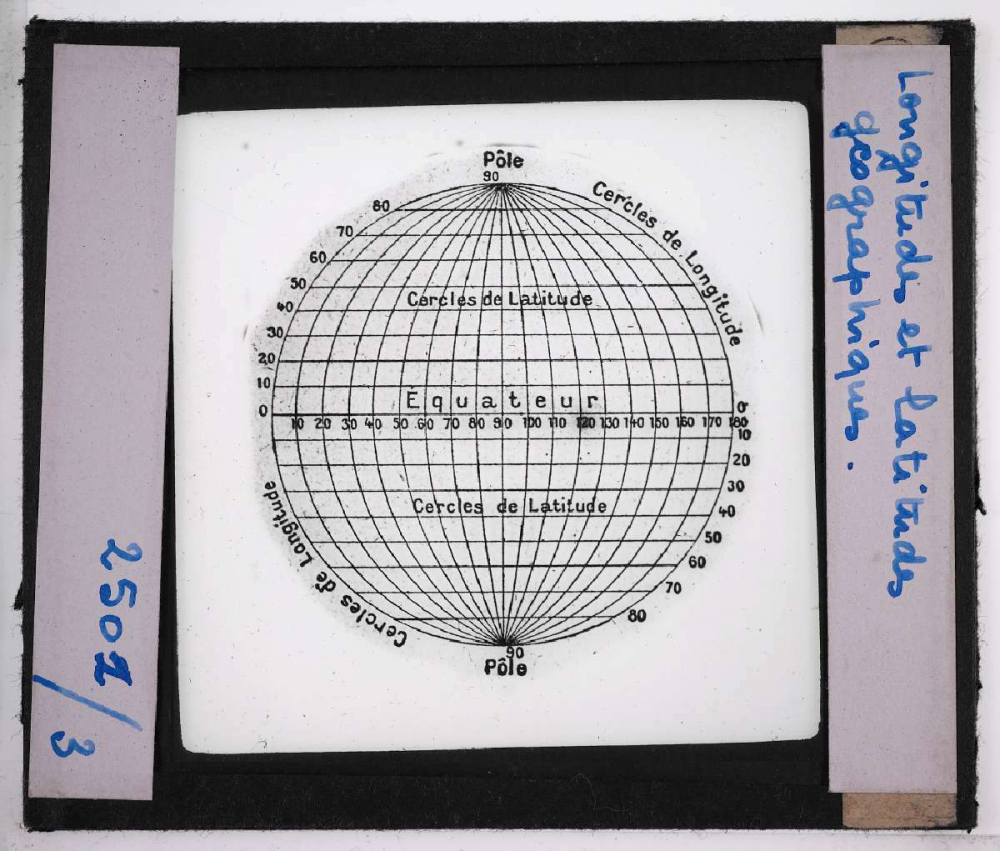 Pôle
90
Cercles de Longitude
80
70
60
50
40
30
20
10
0
Cercles de Latitude
Équateur
0
10 20 30 40 50 60 70 80 90 100 110 120 130 140 150 160 170 180
10
20
30
40
50
60
70
80
Cercles de Latitude
Cercles de Longitude
90
Pôle
Longitudes et latitudes
géographiques.
2501
/3